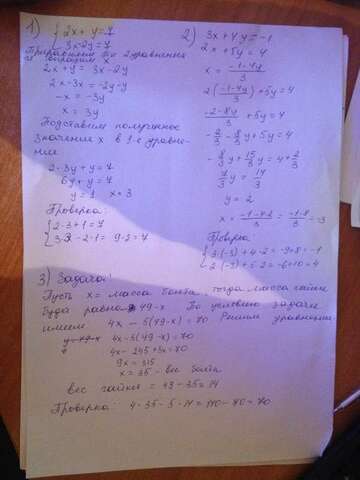 1) { 2x + y = 7
3x - 2y = 7
Приравняем по 2 уравнения
и выразим x
2x + y = 3x - 2y
2x - 3x = -2y - y
-x = -3y
x = 3y
Подставим полученное
значение x в 1-е уравне-
ние
2·3y + y = 7
6y + y = 7
y = 1 x = 3
Проверка:
{ 2·3 + 1 = 7
3·3 - 2·1 = 9 - 2 = 7
2) 3x + 4y = -1
2x + 5y = 4
x = (-1 - 4y)/3
2((-1 - 4y)/3) + 5y = 4
(-2 - 8y)/3 + 5y = 4
-2/3 - 8/3 y + 5y = 4
-8/3 y + 15/3 y = 4 + 2/3
7/3 y = 14/3
y = 2
x = (-1 - 4·2)/3 = (-1 - 8)/3 = -3
Проверка:
{ 3·(-3) + 4·2 = -9 + 8 = -1
2·(-3) + 5·2 = -6 + 10 = 4
3) Задача:
Пусть x = масса болта, тогда масса гайки
буда равно 49 - x По условию задачи
имеем 4x - 5(49 - x) = 70 Решим уравнение
4x - 5(49 - x) = 70
4x - 245 + 5x = 70
9x = 315
x = 35 - вес болта
вес гайки = 49 - 35 = 14
Проверка 4·35 - 5·14 = 140 - 70 = 70